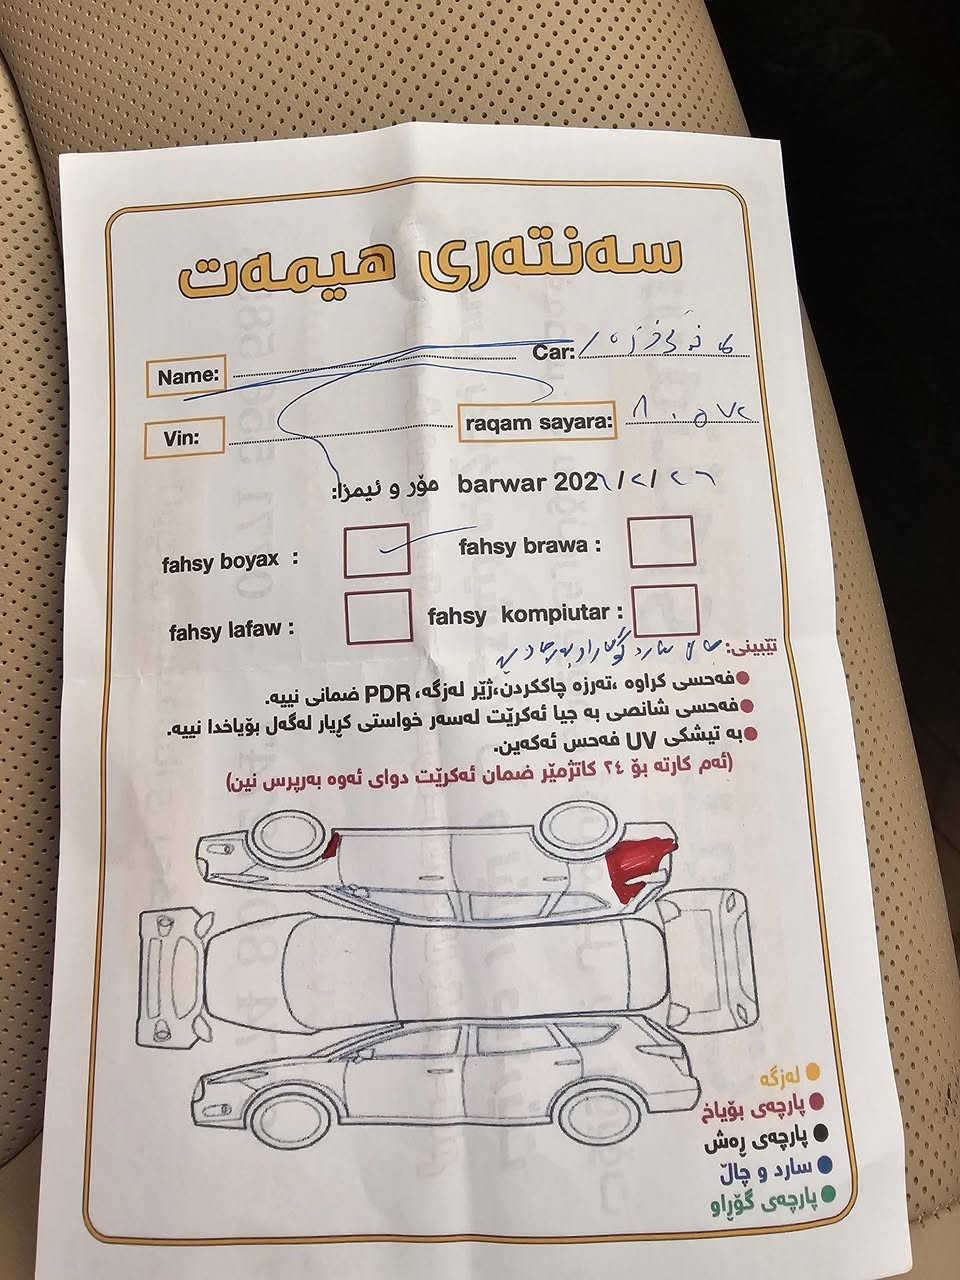 سەنتەری هیمەت
Name: Car:
Vin: raqam sayara: ٨٠٥٧٢
مۆر و ئیمزا: barwar 202٦/٢/٢٦
fahsy boyax : fahsy brawa :
fahsy lafaw : fahsy kompiutar :
تێبینی:
فەحسی کراوە ،تەرزە چاککردن،ژێر لەزگە، PDR ضمانی نییە.
فەحسی شانصی بە جیا ئەکرێت لەسەر خواستی کڕیار لەگەل بۆیاخدا نییە.
بە تیشکی UV فەحس ئەکەین.
(ئەم کارتە بۆ ٢٤ کاتژمێر ضمان ئەکرێت دوای ئەوە بەرپرس نین)
لەزگە
پارچەی بۆیاخ
پارچەی ڕەش
سارد و چاڵ
پارچەی گۆڕاو